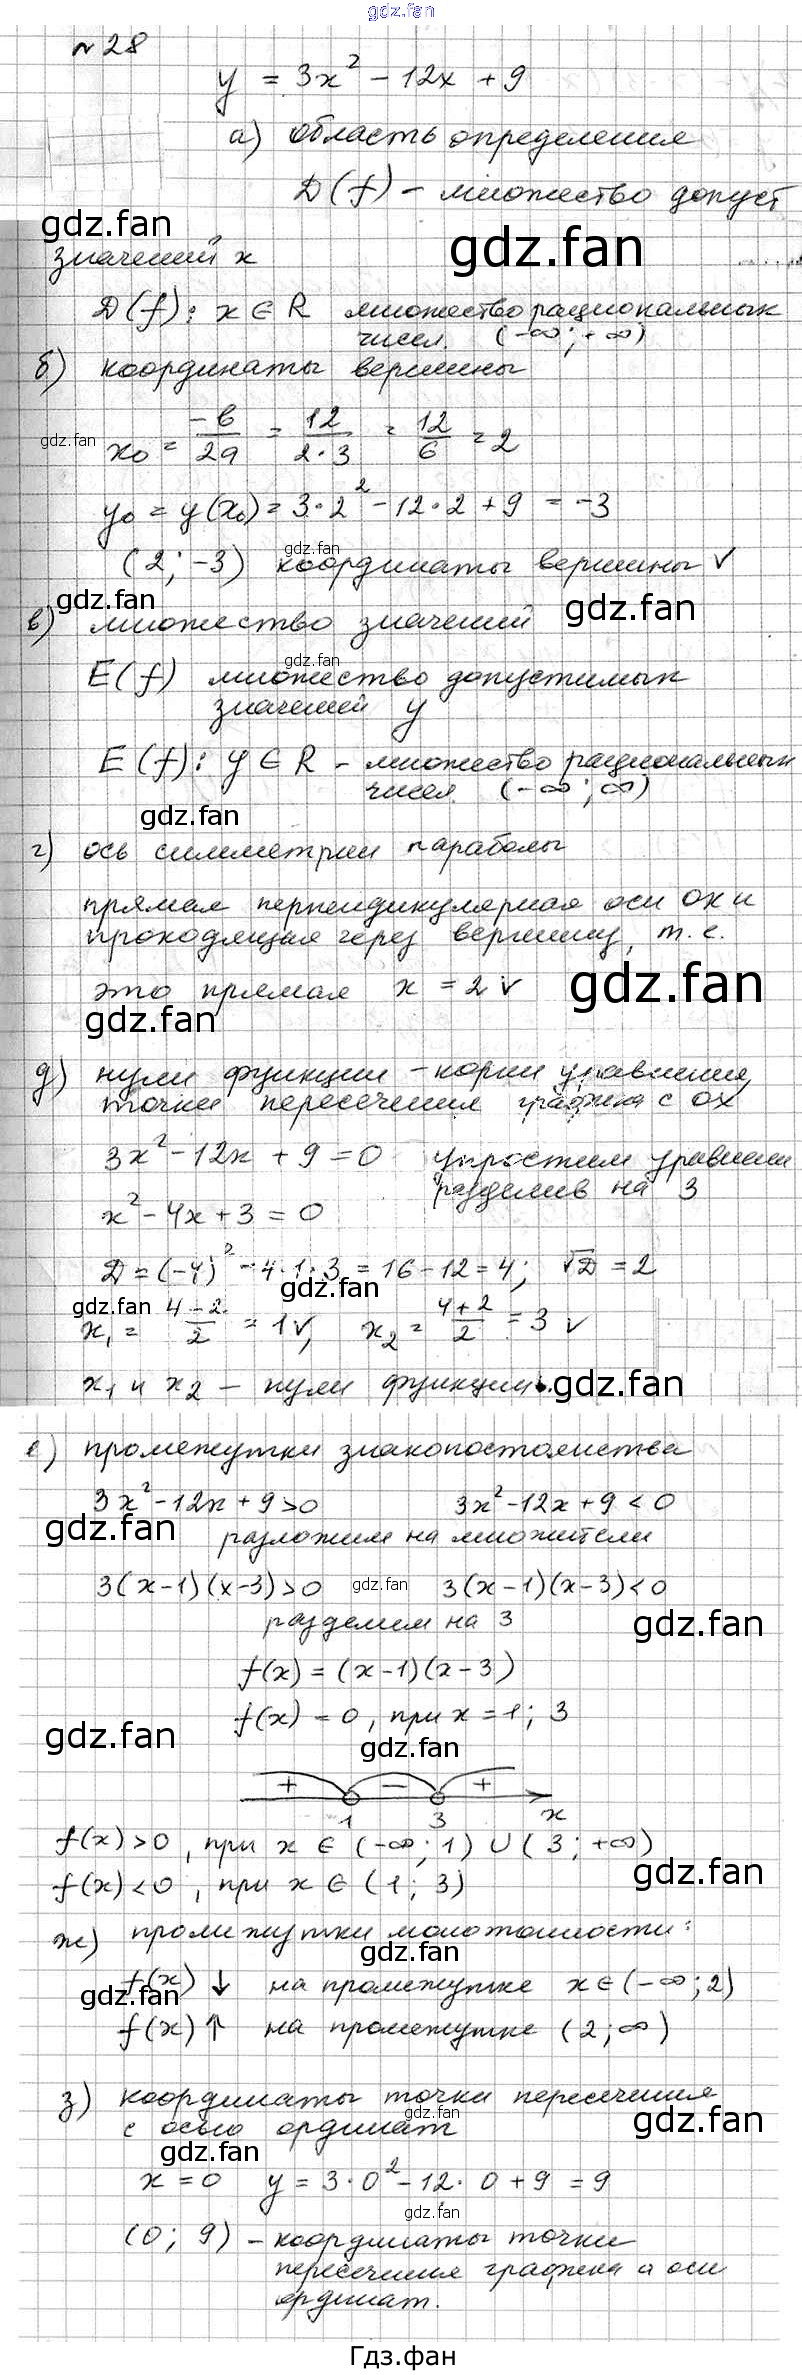 gdz.fan
№28
y = 3x² - 12x + 9
а) область определения
D(f) - множество допуст
gdz.fan
gdz.fan
значений x
D(f): x ∈ R множество рациональных
чисел. (-∞; +∞)
б) координаты вершины
gdz.fan
x₀ = -в/2a = 12/2·3 = 12/6 = 2
y₀ = y(x₀) = 3·2² - 12·2 + 9 = -3
gdz.fan
(2; -3) координаты вершины ✓
gdz.fan
gdz.fan
в) множество значений
gdz.fan
E(f) множество допустимых
значений y
E(f): y ∈ R - множество рациональных
чисел. (-∞; ∞)
gdz.fan
г) ось симметрии параболы
прямая перпендикулярная оси ОХ и
проходящая через вершину, т.е.
это прямая x = 2 ✓
gdz.fan
gdz.fan
д) нули функции - корни уравнения,
точки пересечения графика с ох
3x² - 12x + 9 = 0 упростим уравнени
разделив на 3
x² - 4x + 3 = 0
D = (-4)² - 4·1·3 = 16 - 12 = 4; √D = 2
gdz.fan
gdz.fan
x₁ = 4-2/2 = 1 ✓, x₂ = 4+2/2 = 3 ✓
x₁ и x₂ - нули функции.
gdz.fan
е) промежутки знакопостоянства
3x² - 12x + 9 > 0 3x² - 12x + 9 < 0
gdz.fan
разложим на множители
3(x-1)(x-3) > 0 gdz.fan 3(x-1)(x-3) < 0
разделим на 3
gdz.fan
f(x) = (x-1)(x-3)
f(x) = 0, при x = 1; 3
gdz.fan
gdz.fan
+ - +
1 3 x
f(x) > 0, при x ∈ (-∞; 1) ∪ (3; +∞)
gdz.fan
f(x) < 0, при x ∈ (1; 3)
ж) промежутки монотонности:
gdz.fan
f(x) ↓ на промежутке x ∈ (-∞; 2)
gdz.fan
f(x) ↑ на промежутке (2; ∞)
з) координаты точки пересечения
gdz.fan
gdz.fan
с осью ординат
gdz.fan
x = 0 y = 3·0² - 12·0 + 9 = 9
gdz.fan
(0; 9) - координаты точки
пересечения графика а оси
ординат.
Гдз.фан